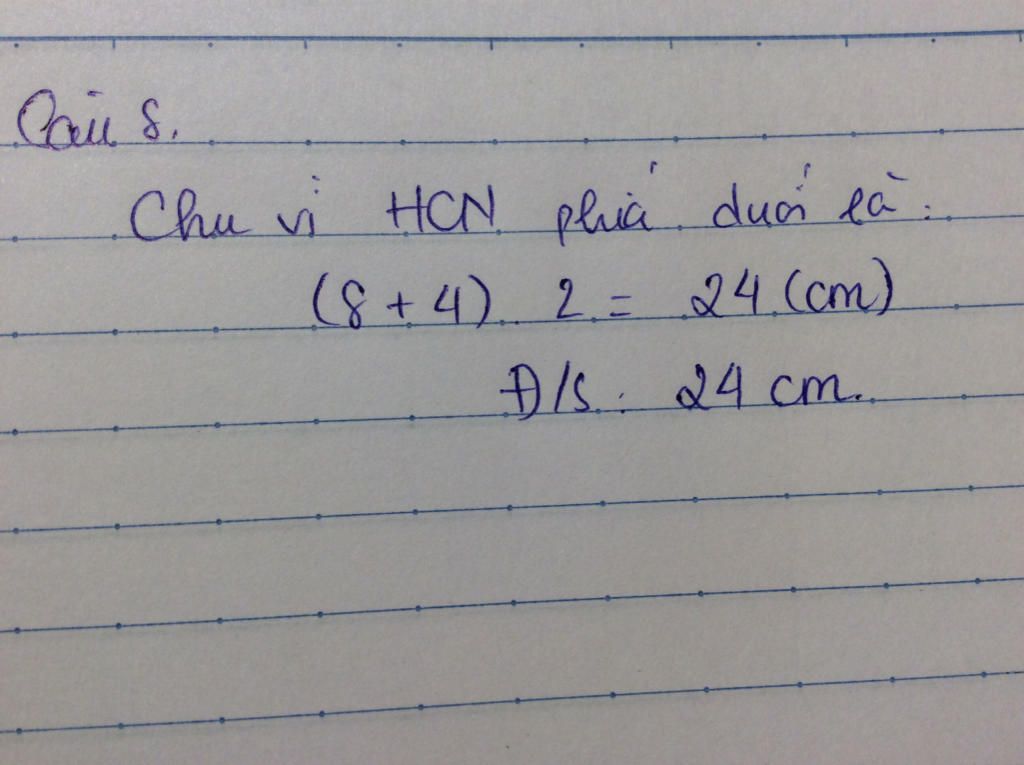 Câu 8.
Chu vi HCN phía dưới là:
(8 + 4) . 2 = 24 (cm)
Đ/S: 24 cm.